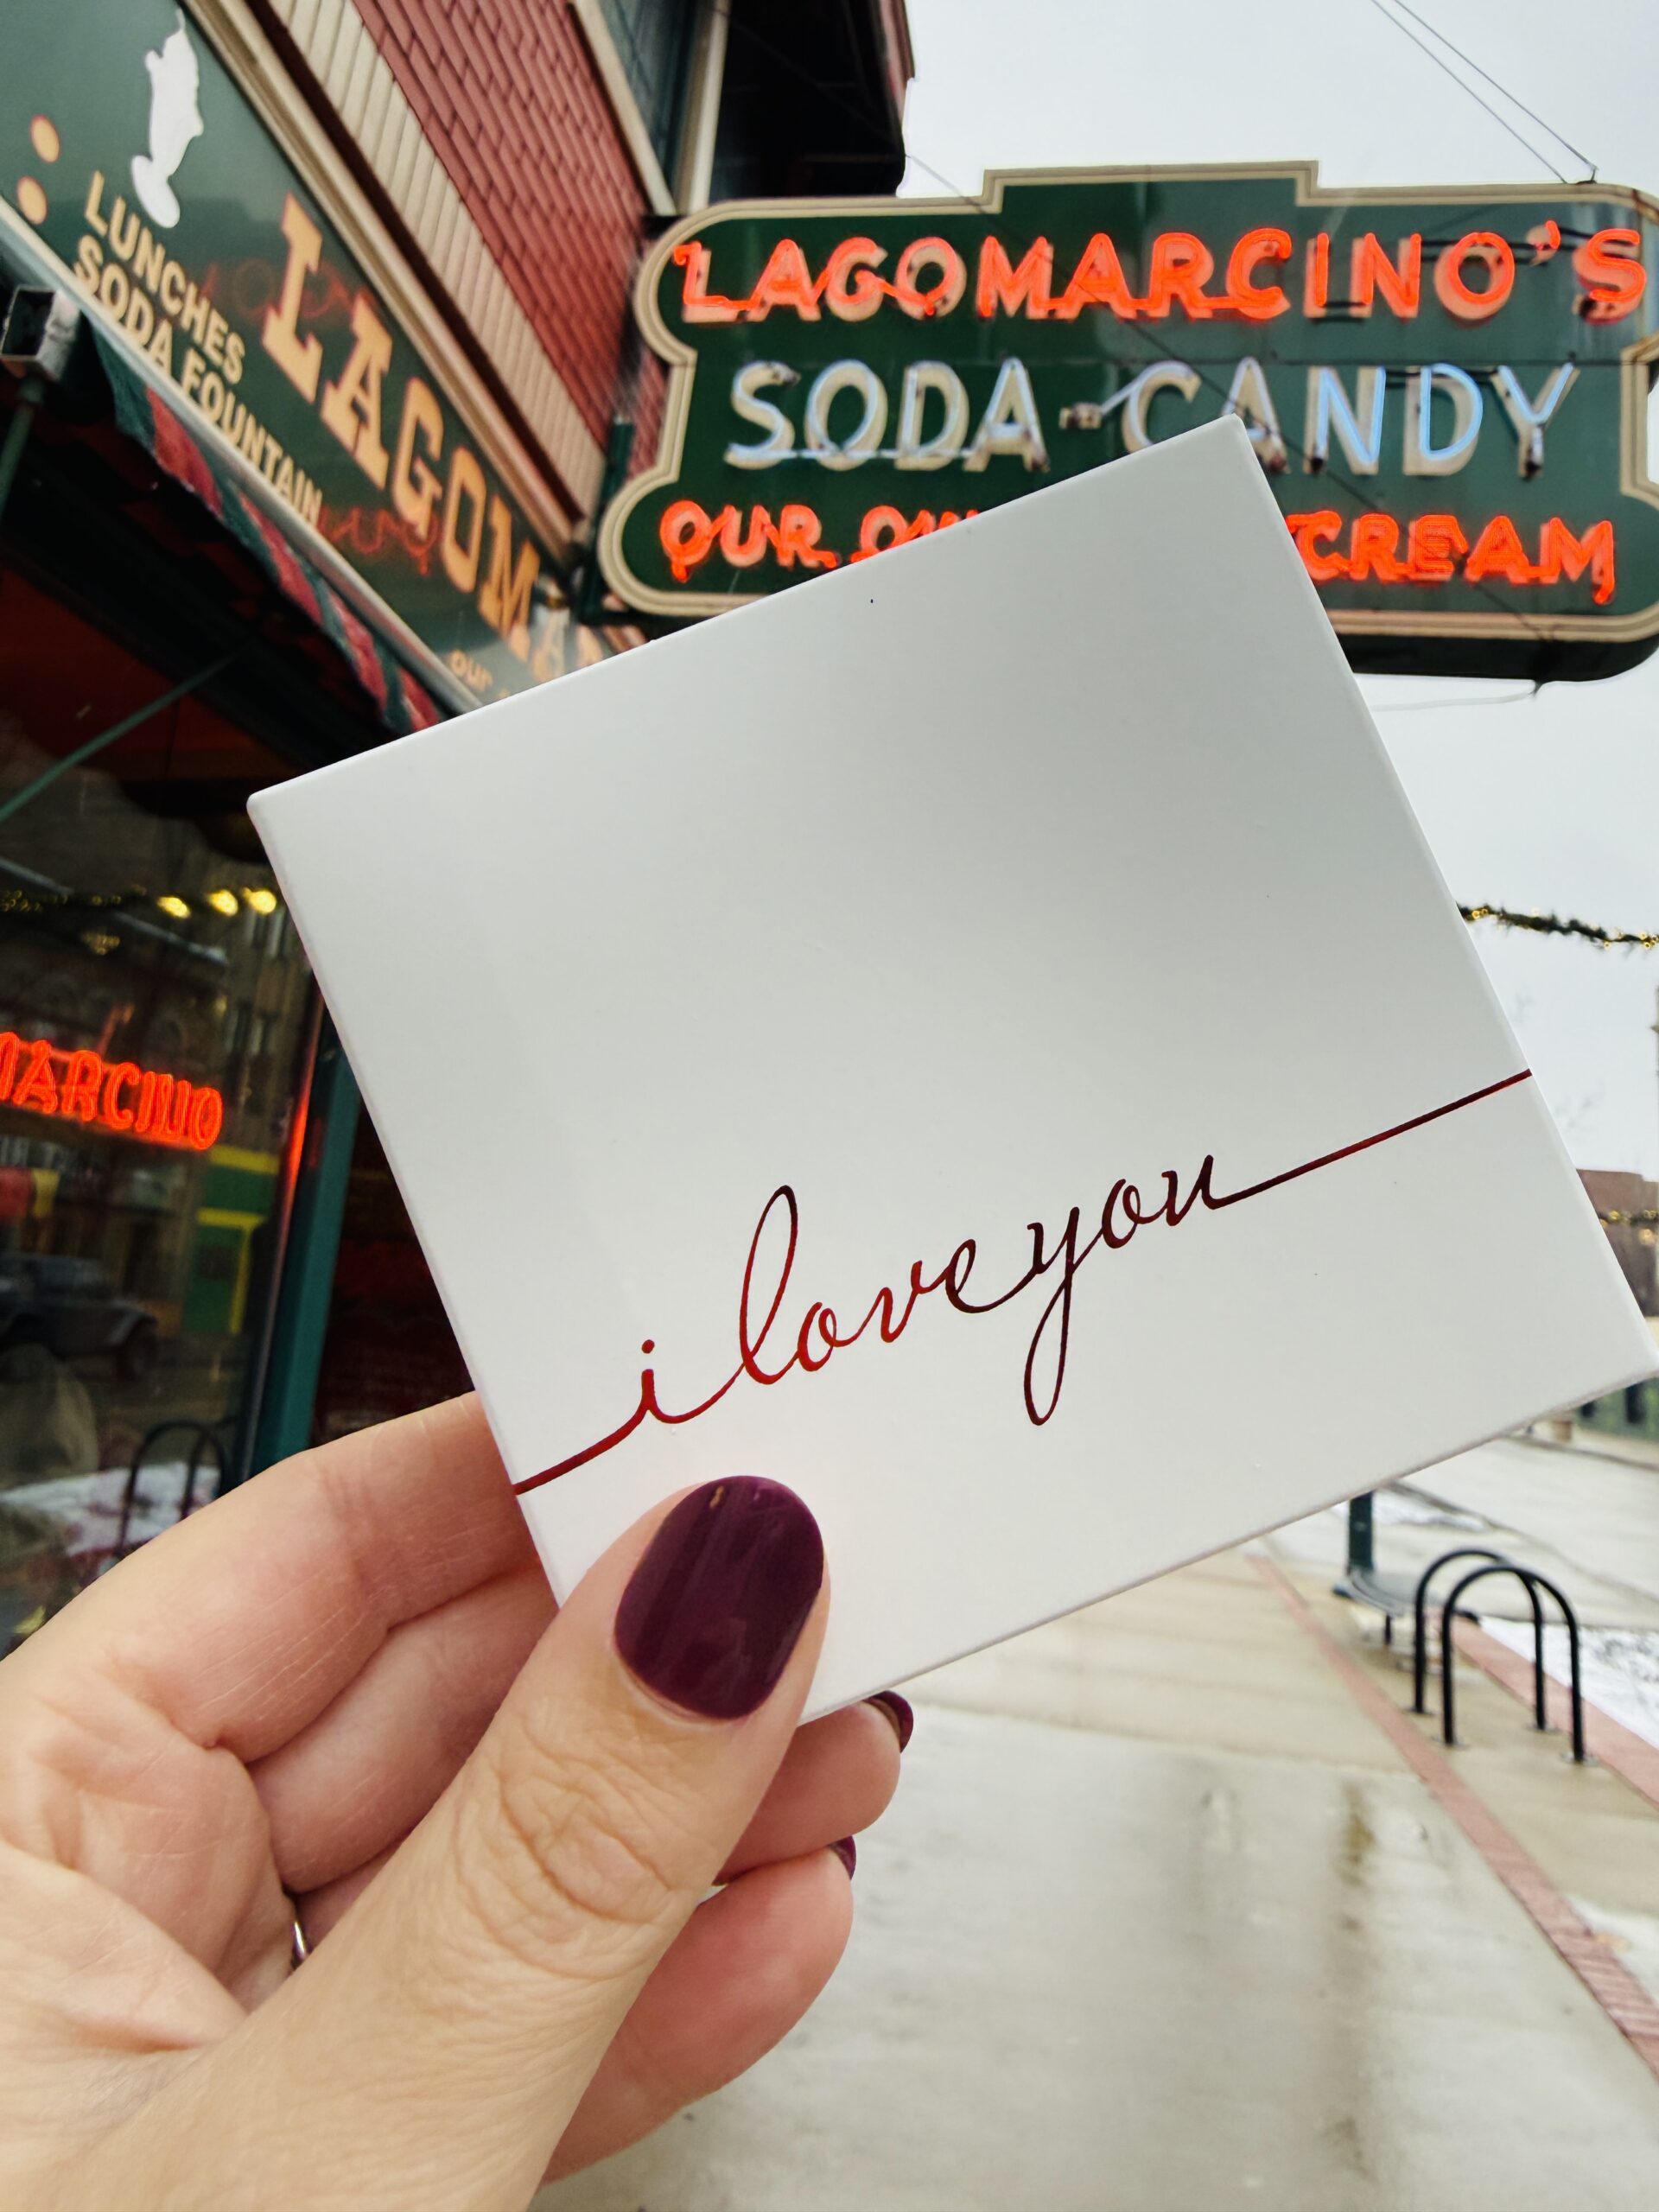 LUNCHES
SODA FOUNTAIN
LAGOMA
our
LAGOMARCINO'S
SODA - CANDY
OUR CREAM
MARCINO
i love you